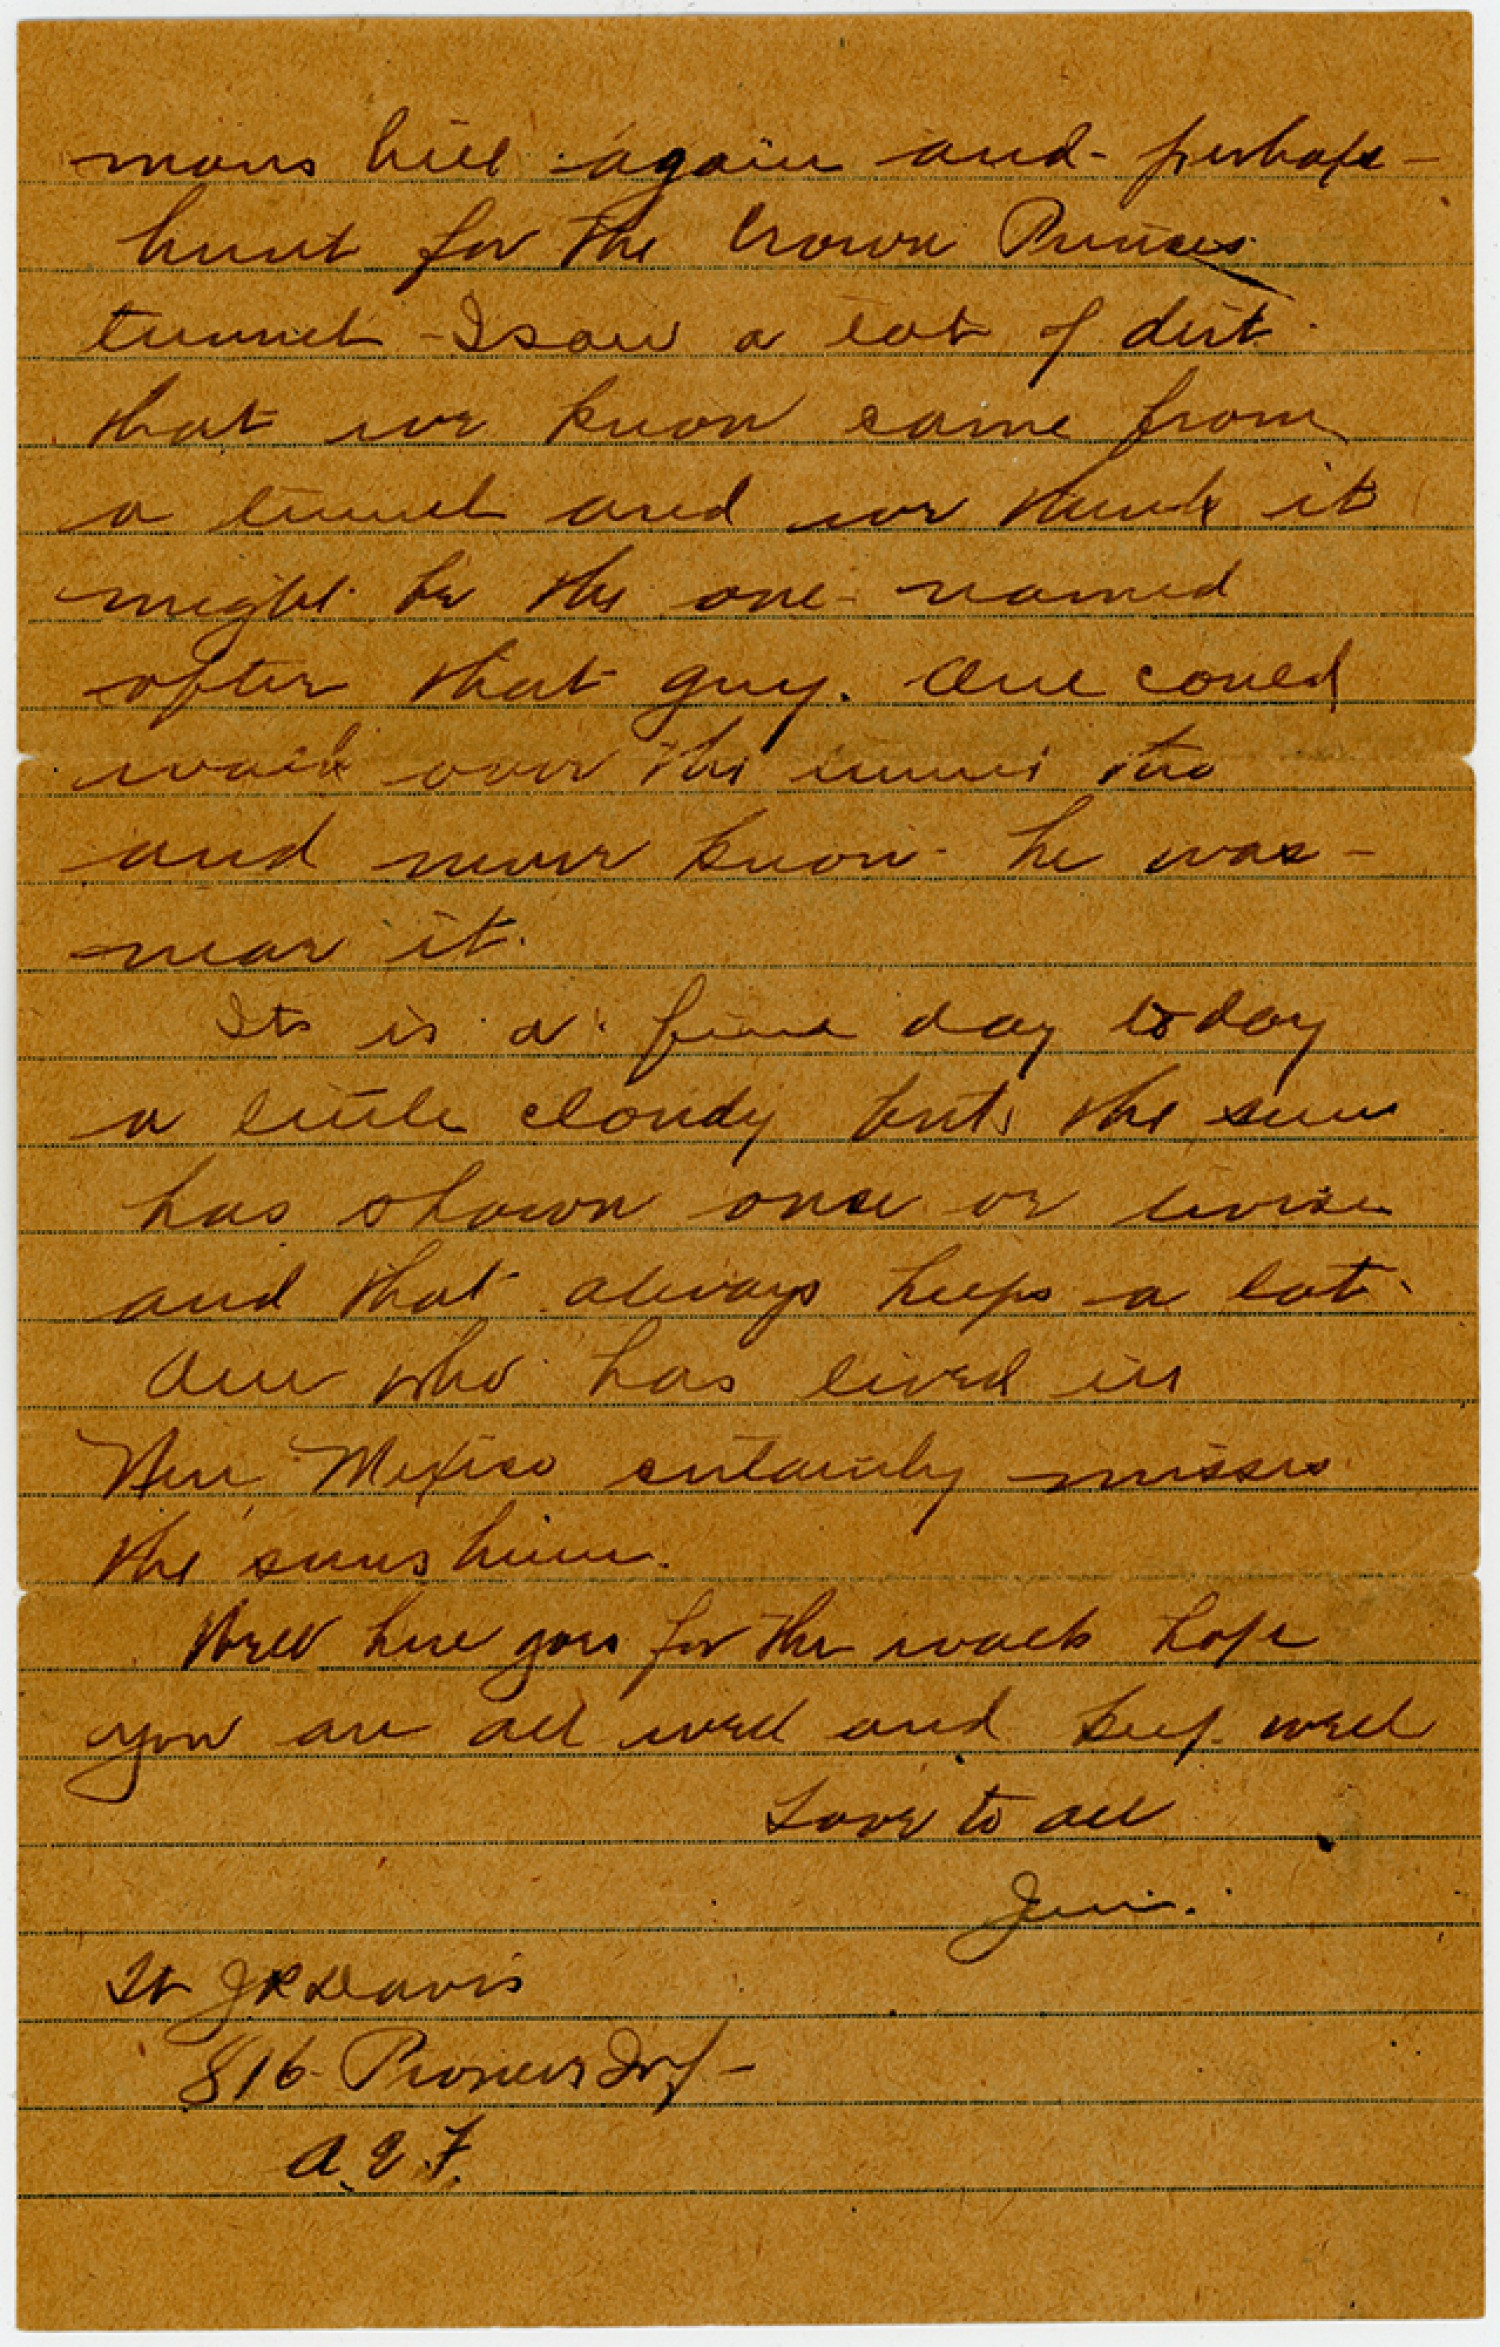 mans hill again and perhaps
hunt for the Crown Princes
tunnel - I saw a lot of dirt
that we know came from
a tunnel and we think it
might be the one named
after that guy. One could
walk over the tunnel tho
and never know he was
near it.
Its is a fine day today
a little cloudy but the sun
has shown once or twise
and that always helps a lot
One who has lived in
New Mexico certainly misses
the sunshine.
Well here goes for the walk hope
you are all well and keep well
Love to all
Jim.
Lt J R Davis
816 Pioneer Inf -
A.E.F.